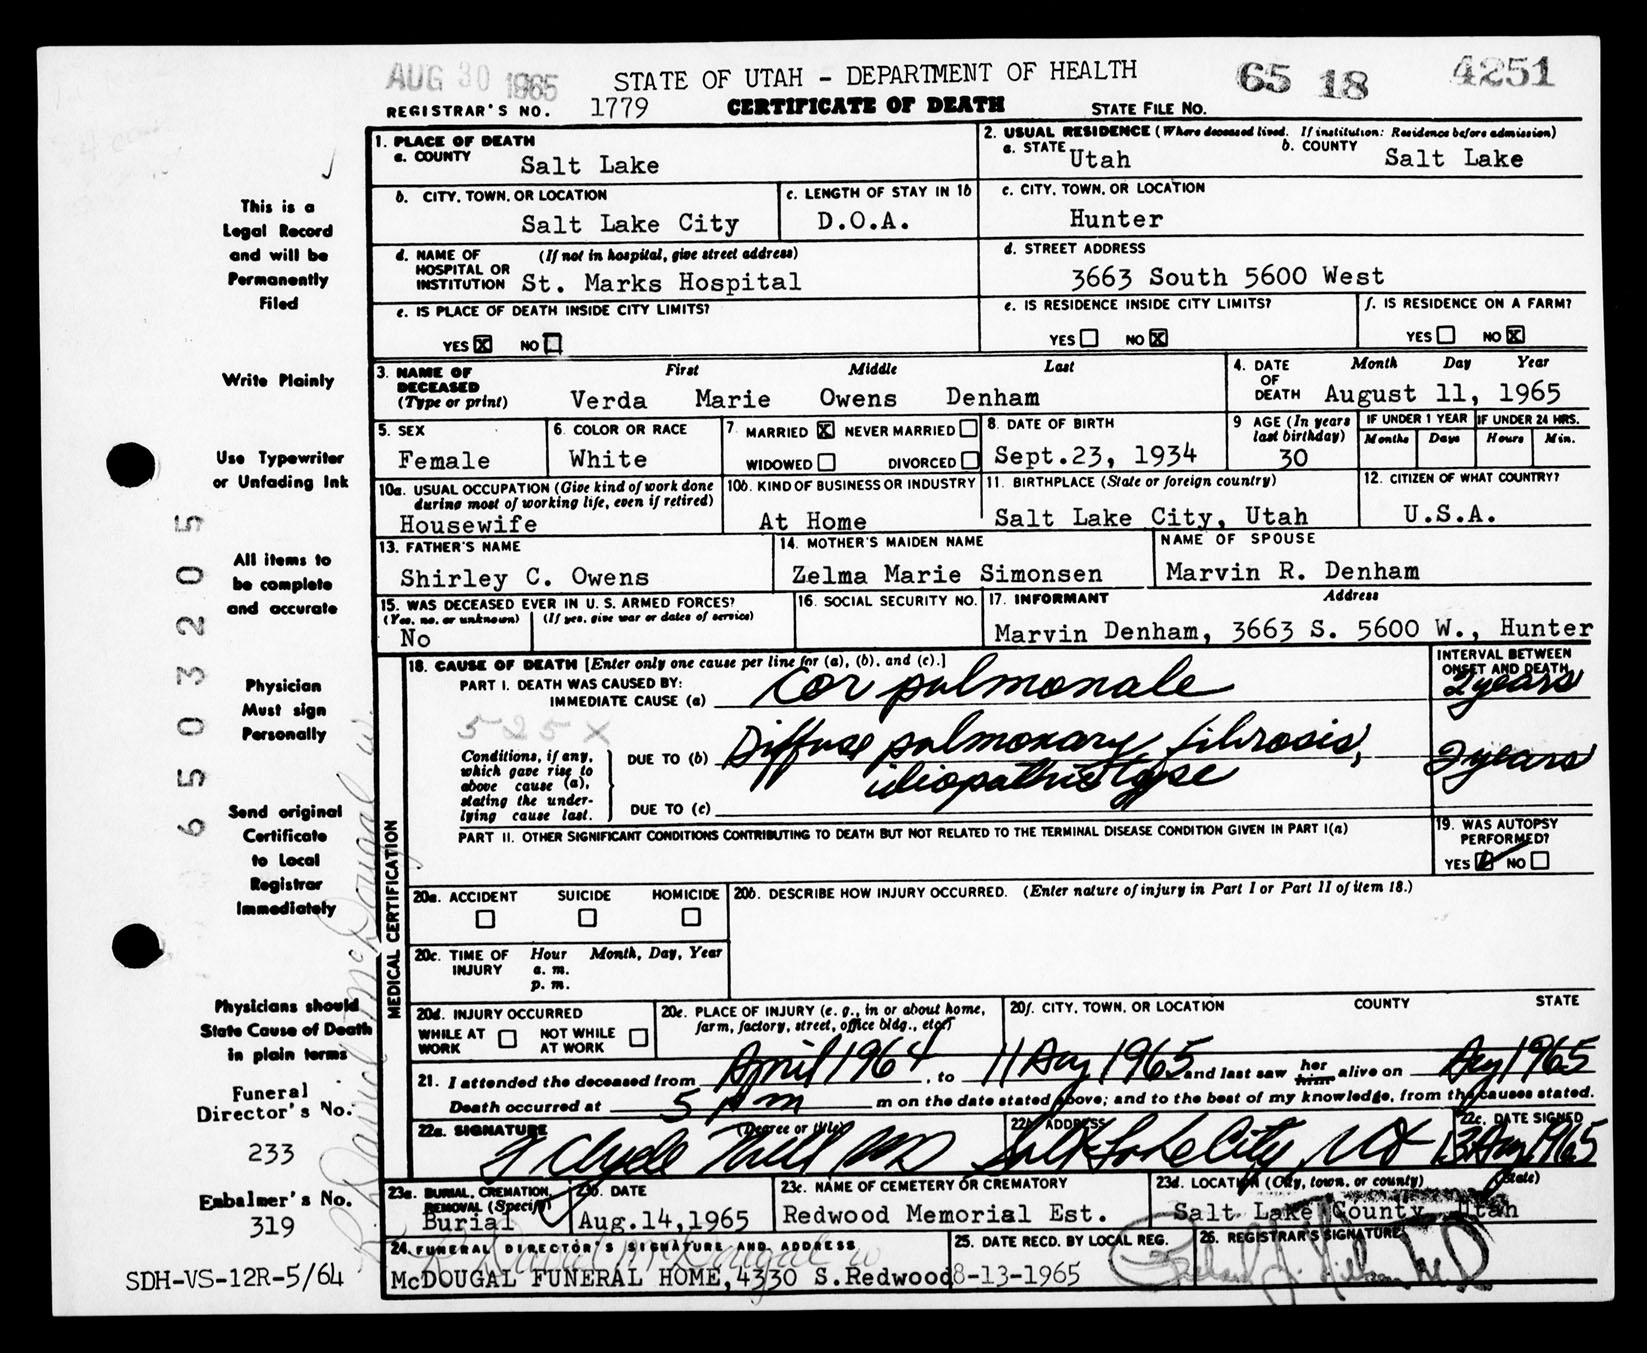 AUG 30 1965
STATE OF UTAH - DEPARTMENT OF HEALTH
65 18 4251
REGISTRAR'S NO. 1779 CERTIFICATE OF DEATH STATE FILE NO.
1. PLACE OF DEATH
a. COUNTY Salt Lake
2. USUAL RESIDENCE (Where deceased lived. If institution: Residence before admission)
a. STATE Utah b. COUNTY Salt Lake
b. CITY, TOWN, OR LOCATION Salt Lake City
c. LENGTH OF STAY IN 1b D.O.A.
c. CITY, TOWN, OR LOCATION Hunter
d. NAME OF HOSPITAL OR INSTITUTION (If not in hospital, give street address) St. Marks Hospital
d. STREET ADDRESS 3663 South 5600 West
e. IS PLACE OF DEATH INSIDE CITY LIMITS?
YES X NO
e. IS RESIDENCE INSIDE CITY LIMITS?
YES NO X
f. IS RESIDENCE ON A FARM?
YES NO X
3. NAME OF DECEASED (Type or print) First Middle Last
Verda Marie Owens Denham
4. DATE OF DEATH Month Day Year
August 11, 1965
5. SEX Female
6. COLOR OR RACE White
7. MARRIED X NEVER MARRIED
WIDOWED DIVORCED
8. DATE OF BIRTH Sept.23, 1934
9 AGE (In years last birthday) 30
IF UNDER 1 YEAR Months Days
IF UNDER 24 HRS. Hours Min.
10a. USUAL OCCUPATION (Give kind of work done during most of working life, even if retired)
Housewife
10b. KIND OF BUSINESS OR INDUSTRY
At Home
11. BIRTHPLACE (State or foreign country)
Salt Lake City, Utah
12. CITIZEN OF WHAT COUNTRY?
U.S.A.
13. FATHER'S NAME
Shirley C. Owens
14. MOTHER'S MAIDEN NAME
Zelma Marie Simonsen
NAME OF SPOUSE
Marvin R. Denham
15. WAS DECEASED EVER IN U. S. ARMED FORCES?
(Yes, no, or unknown) (If yes, give war or dates of service)
No
16. SOCIAL SECURITY NO.
17. INFORMANT Address
Marvin Denham, 3663 S. 5600 W., Hunter
18. CAUSE OF DEATH [Enter only one cause per line for (a), (b), and (c).]
INTERVAL BETWEEN ONSET AND DEATH
PART I. DEATH WAS CAUSED BY:
IMMEDIATE CAUSE (a) Cor pulmonale 2 years
525X
Conditions, if any, which gave rise to above cause (a), stating the underlying cause last.
DUE TO (b) Diffuse pulmonary fibrosis, 2 years
idiopathic type
DUE TO (c)
PART II. OTHER SIGNIFICANT CONDITIONS CONTRIBUTING TO DEATH BUT NOT RELATED TO THE TERMINAL DISEASE CONDITION GIVEN IN PART I(a)
19. WAS AUTOPSY PERFORMED?
YES NO
MEDICAL CERTIFICATION
20a. ACCIDENT SUICIDE HOMICIDE
20b. DESCRIBE HOW INJURY OCCURRED. (Enter nature of injury in Part I or Part II of item 18.)
20c. TIME OF INJURY Hour Month, Day, Year
a. m.
p. m.
20d. INJURY OCCURRED
WHILE AT WORK NOT WHILE AT WORK
20e. PLACE OF INJURY (e. g., in or about home, farm, factory, street, office bldg., etc.)
20f. CITY, TOWN, OR LOCATION COUNTY STATE
21. I attended the deceased from April 1964, to 11 Aug 1965 and last saw her him alive on Aug 1965
Death occurred at 5 PM m on the date stated above; and to the best of my knowledge, from the causes stated.
22a. SIGNATURE (Degree or title)
Clyde MD
22b. ADDRESS
Salt Lake City, Ut
22c. DATE SIGNED
13 Aug 1965
23a. BURIAL, CREMATION, REMOVAL (Specify)
Burial
23b. DATE
Aug.14,1965
23c. NAME OF CEMETERY OR CREMATORY
Redwood Memorial Est.
23d. LOCATION (City, town, or county) (State)
Salt Lake County Utah
24. FUNERAL DIRECTOR'S SIGNATURE AND ADDRESS
McDOUGAL FUNERAL HOME, 4330 S.Redwood
25. DATE RECD. BY LOCAL REG.
8-13-1965
26. REGISTRAR'S SIGNATURE
This is a
Legal Record
and will be
Permanently
Filed
Write Plainly
Use Typewriter
or Unfading Ink
All items to
be complete
and accurate
Physician
Must sign
Personally
Send original
Certificate
to Local
Registrar
Immediately
Physicians should
State Cause of Death
in plain terms
Funeral
Director's No.
233
Embalmer's No.
319
SDH-VS-12R-5/64
6503205